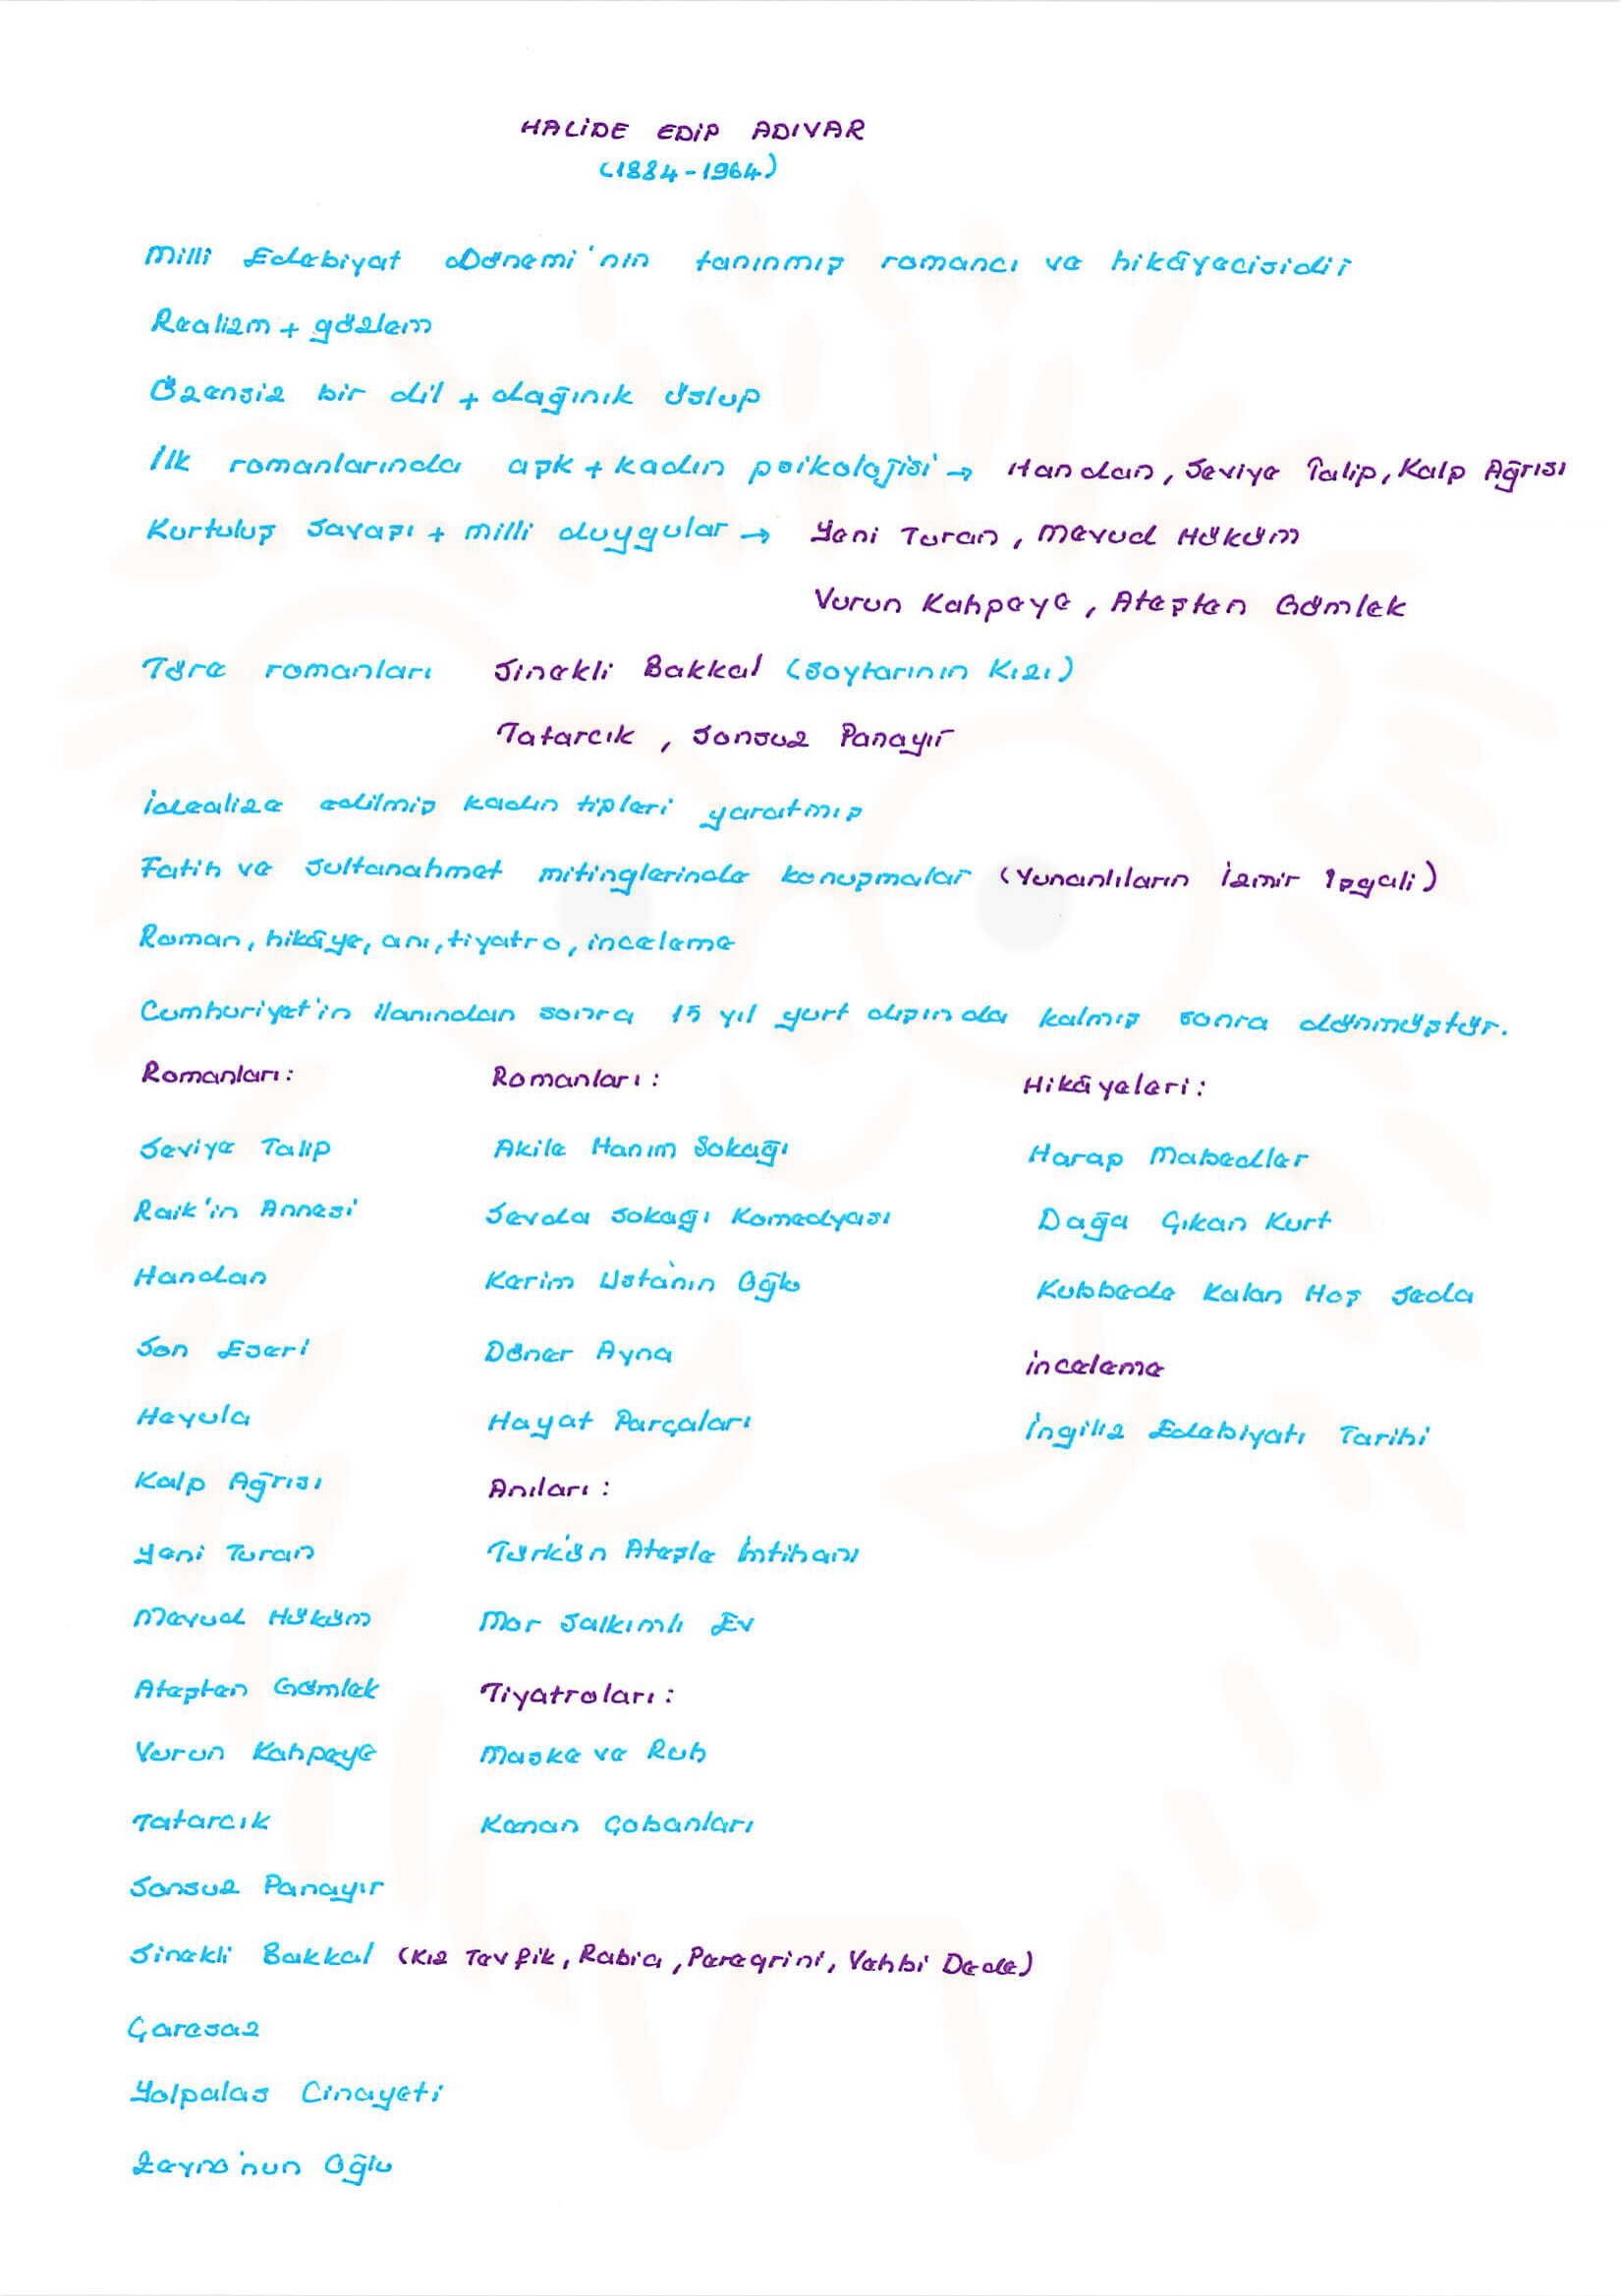 HALİDE EDİP ADIVAR
(1884-1964)
Milli Edebiyat Dönemi'nin tanınmış romancı ve hikâyecisidir
Realizm + gözlem
Özensiz bir dil + dağınık üslup
İlk romanlarında aşk + kadın psikolojisi → Handan, Seviye Talip, Kalp Ağrısı
Kurtuluş Savaşı + milli duygular → Yeni Turan, Mevud Hüküm
Vurun Kahpeye, Ateşten Gömlek
Töre romanları Sinekli Bakkal (Soytarının Kızı)
Tatarcık, Sonsuz Panayır
İdealize edilmiş kadın tipleri yaratmış
Fatih ve Sultanahmet mitinglerinde konuşmalar (Yunanlıların İzmir İşgali)
Roman, hikâye, anı, tiyatro, inceleme
Cumhuriyet'in ilanından sonra 15 yıl yurt dışında kalmış sonra dönmüştür.
Romanları:
Seviye Talip
Raik'in Annesi
Handan
Son Eseri
Heyula
Kalp Ağrısı
Yeni Turan
Mevud Hüküm
Ateşten Gömlek
Vurun Kahpeye
Tatarcık
Sonsuz Panayır
Sinekli Bakkal (Kız Tevfik, Rabia, Peregrini, Vehbi Dede)
Çaresaz
Yolpalas Cinayeti
Zeyno'nun Oğlu
Romanları:
Akile Hanım Sokağı
Sevda Sokağı Komedyası
Kerim Usta'nın Oğlu
Döner Ayna
Hayat Parçaları
Anıları:
Türk'ün Ateşle İmtihanı
Mor Salkımlı Ev
Tiyatroları:
Maske ve Ruh
Kenan Çobanları
Hikâyeleri:
Harap Mabedler
Dağa Çıkan Kurt
Kubbede Kalan Hoş Seda
İnceleme
İngiliz Edebiyatı Tarihi